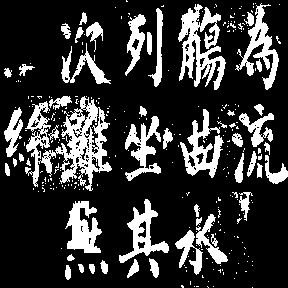 為流
觴曲水
列坐其
次雖無
絲